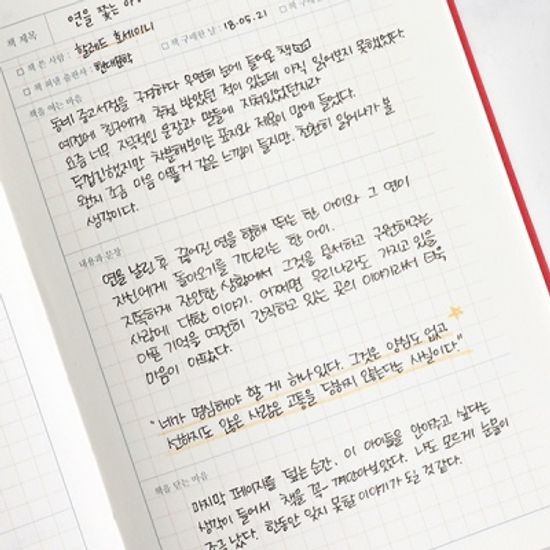 책 제목 연을 쫓는 아
책 쓴 사람 : 할레드 호세이니 책 구매한 날 : 18.05.21
책 펴낸 출판사 : 현대문학
책을 여는 마음
동네 중고서점을 구경하다 우연히 눈에 들어온 책
예전에 친구에게 추천 받았던 적이 있는데 아직 읽어보지 못했었다.
요즘 너무 자극적인 문장과 말들에 지쳐있었던지라
두껍긴했지만 차분해보이는 표지와 제목이 맘에 들었다.
왠지 조금 마음 아플거 같은 느낌이 들지만. 천천히 읽어나가 볼
생각이다.
내용과 문장
연을 날린 후 끊어진 연을 향해 뛰는 한 아이와 그 연이
자신에게 돌아오기를 기다리는 한 아이.
지독하게 잔인한 상황에서 그것을 용서하고 구원해주는
사람에 대한 이야기. 어쩌면 우리나라도 가지고 있을
아픈 기억을 여전히 간직하고 있는 곳의 이야기라서 더욱
마음이 아팠다.
"네가 명심해야 할 게 하나 있다. 그것은 양심도 없고
선하지도 않은 사람은 고통을 당하지 않는다는 사실이다."
책을 닫는 마음
마지막 페이지를 덮는 순간. 이 아이들을 안아주고 싶다는
생각이 들어서 책을 꼭- 껴안아보았다. 나도 모르게 눈물이
조금 났다. 한동안 잊지 못할 이야기가 될 것 같다.